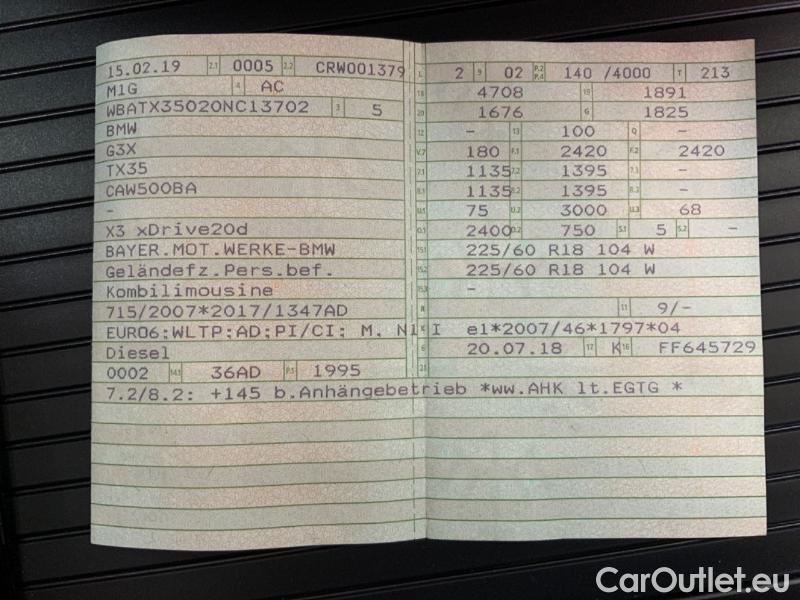 15.02.19 2.1 0005 2.2 CRW001379
M1G 4 AC
WBATX35020NC13702 3 5
BMW
G3X
TX35
CAW500BA
-
X3 xDrive20d
BAYER.MOT.WERKE-BMW
Geländefz.Pers.bef.
Kombilimousine
715/2007*2017/1347AD
EURO6;WLTP;AD;PI/CI; M, N1 I
Diesel
0002 14.1 36AD P.1 1995
7.2/8.2: +145 b.Anhängebetrieb *ww.AHK lt.EGTG *
L 2 9 02 P.2 P.4 140 /4000 T 213
18 4708 19 1891
20 1676 G 1825
12 - 13 100 Q -
V.7 180 F.1 2420 F.2 2420
7.1 1135 7.2 1395 7.3 -
8.1 1135 8.2 1395 8.3 -
U.1 75 U.2 3000 U.3 68
O.1 2400 O.2 750 S.1 5 S.2 -
15.1 225/60 R18 104 W
15.2 225/60 R18 104 W
15.3 -
R 11 9/-
K e1*2007/46*1797*04
6 20.07.18 17 K 16 FF645729
21
CarOutlet.eu